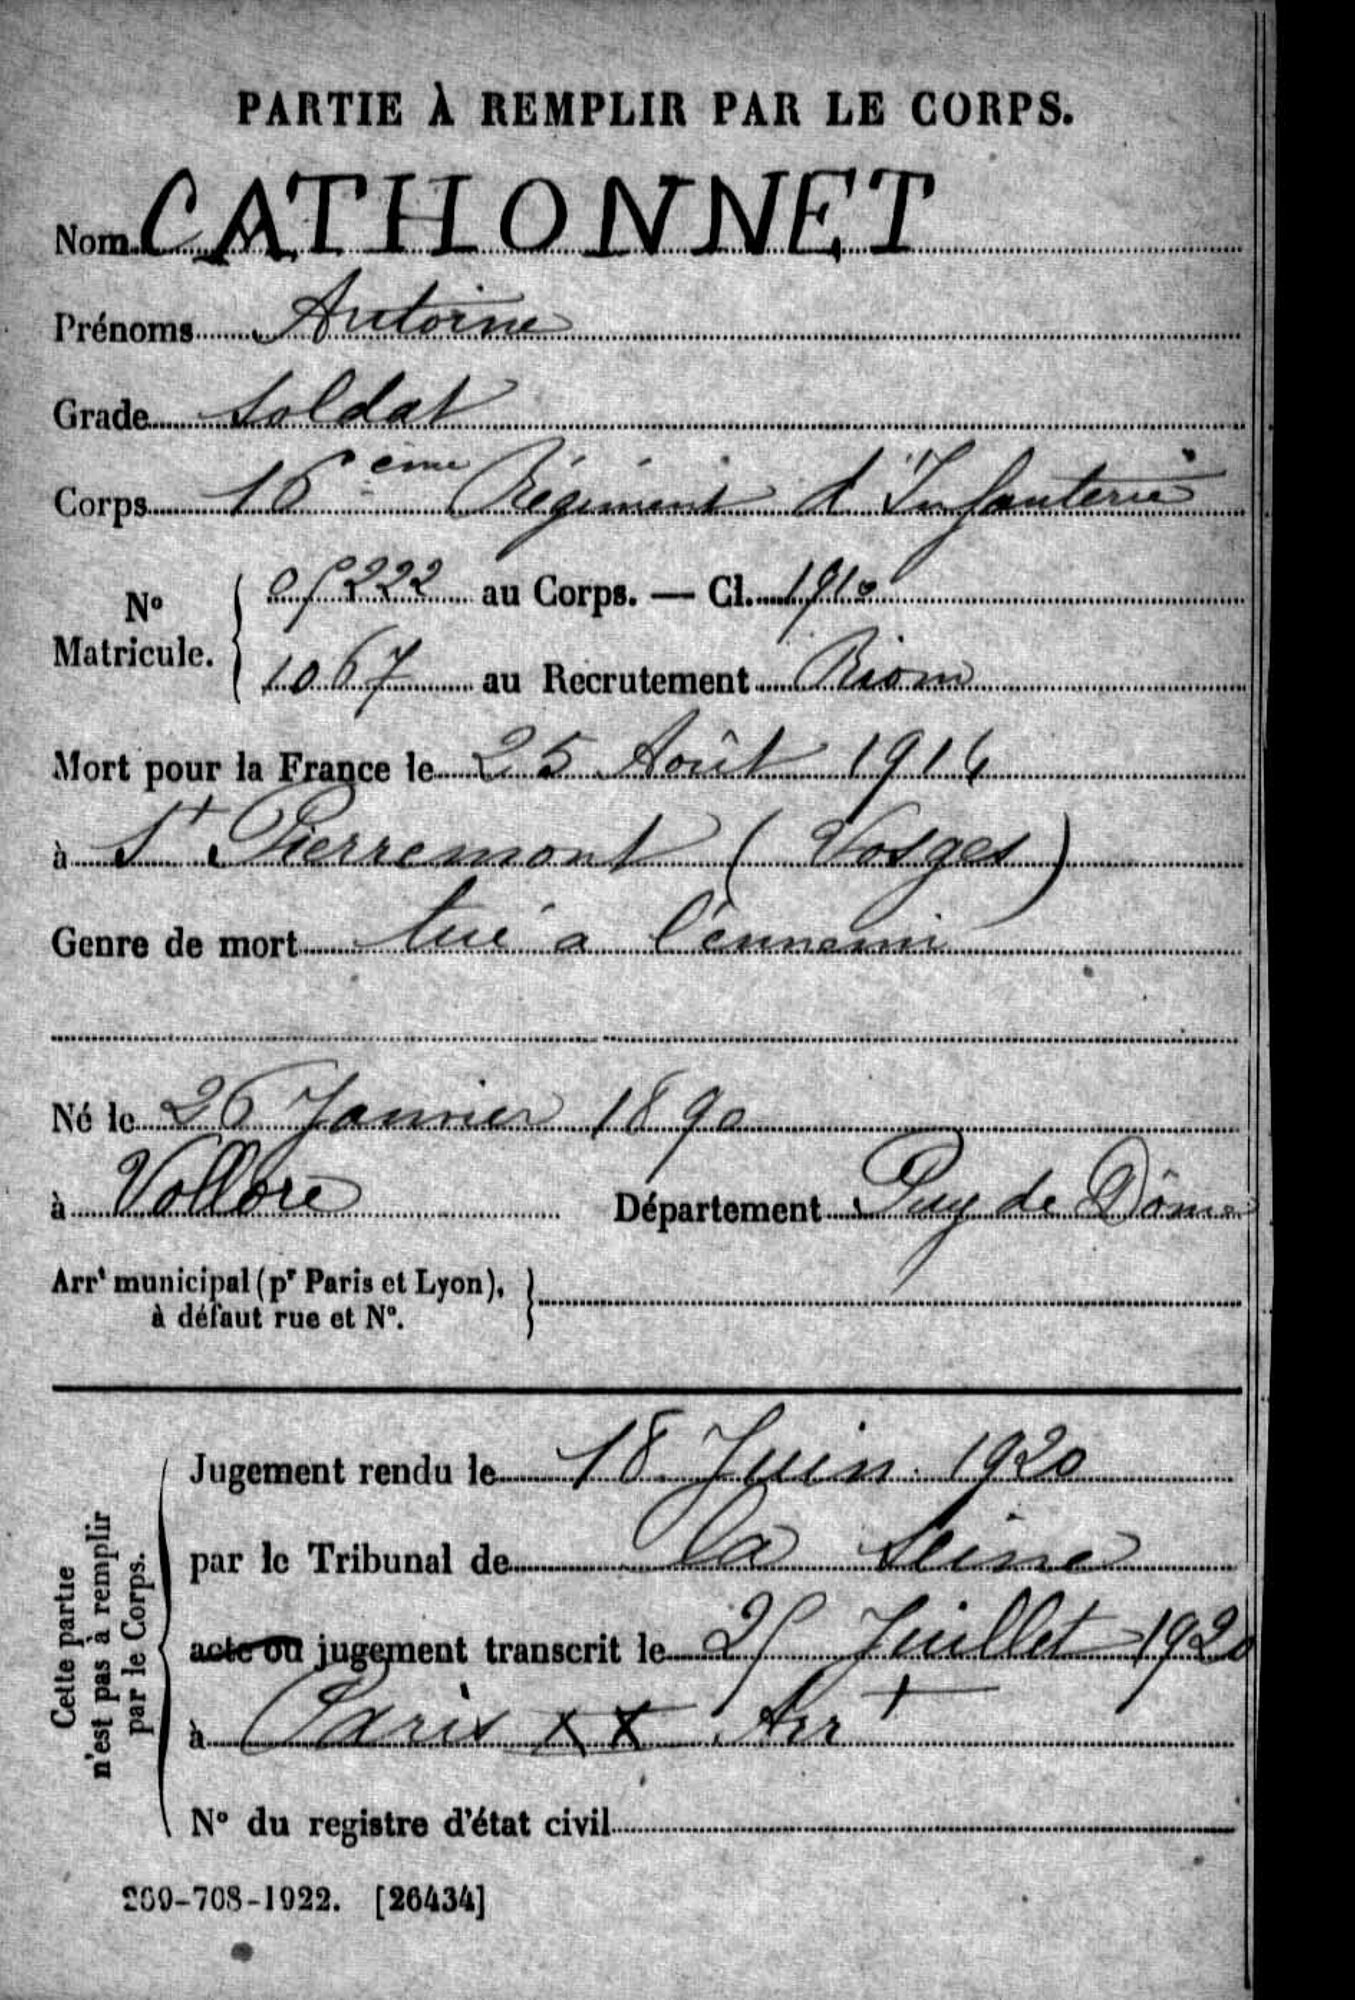 PARTIE À REMPLIR PAR LE CORPS.
Nom CATHONNET
Prénoms Antoine
Grade Soldat
Corps 16ème Régiment d'Infanterie
N° Matricule. 05222 au Corps. — Cl. 1910
1067 au Recrutement Riom
Mort pour la France le 25 Août 1914
à St Pierremont (Vosges)
Genre de mort tué à l'ennemi
Né le 26 Janvier 1890
à Vollore Département Puy de Dôme
Arrt municipal (pr Paris et Lyon), à défaut rue et N°.
Cette partie n'est pas à remplir par le Corps.
Jugement rendu le 18 Juin 1920
par le Tribunal de la Seine
acte ou jugement transcrit le 25 Juillet 1920
à Paris XX Arrt
N° du registre d'état civil
269-708-1922. [26434]